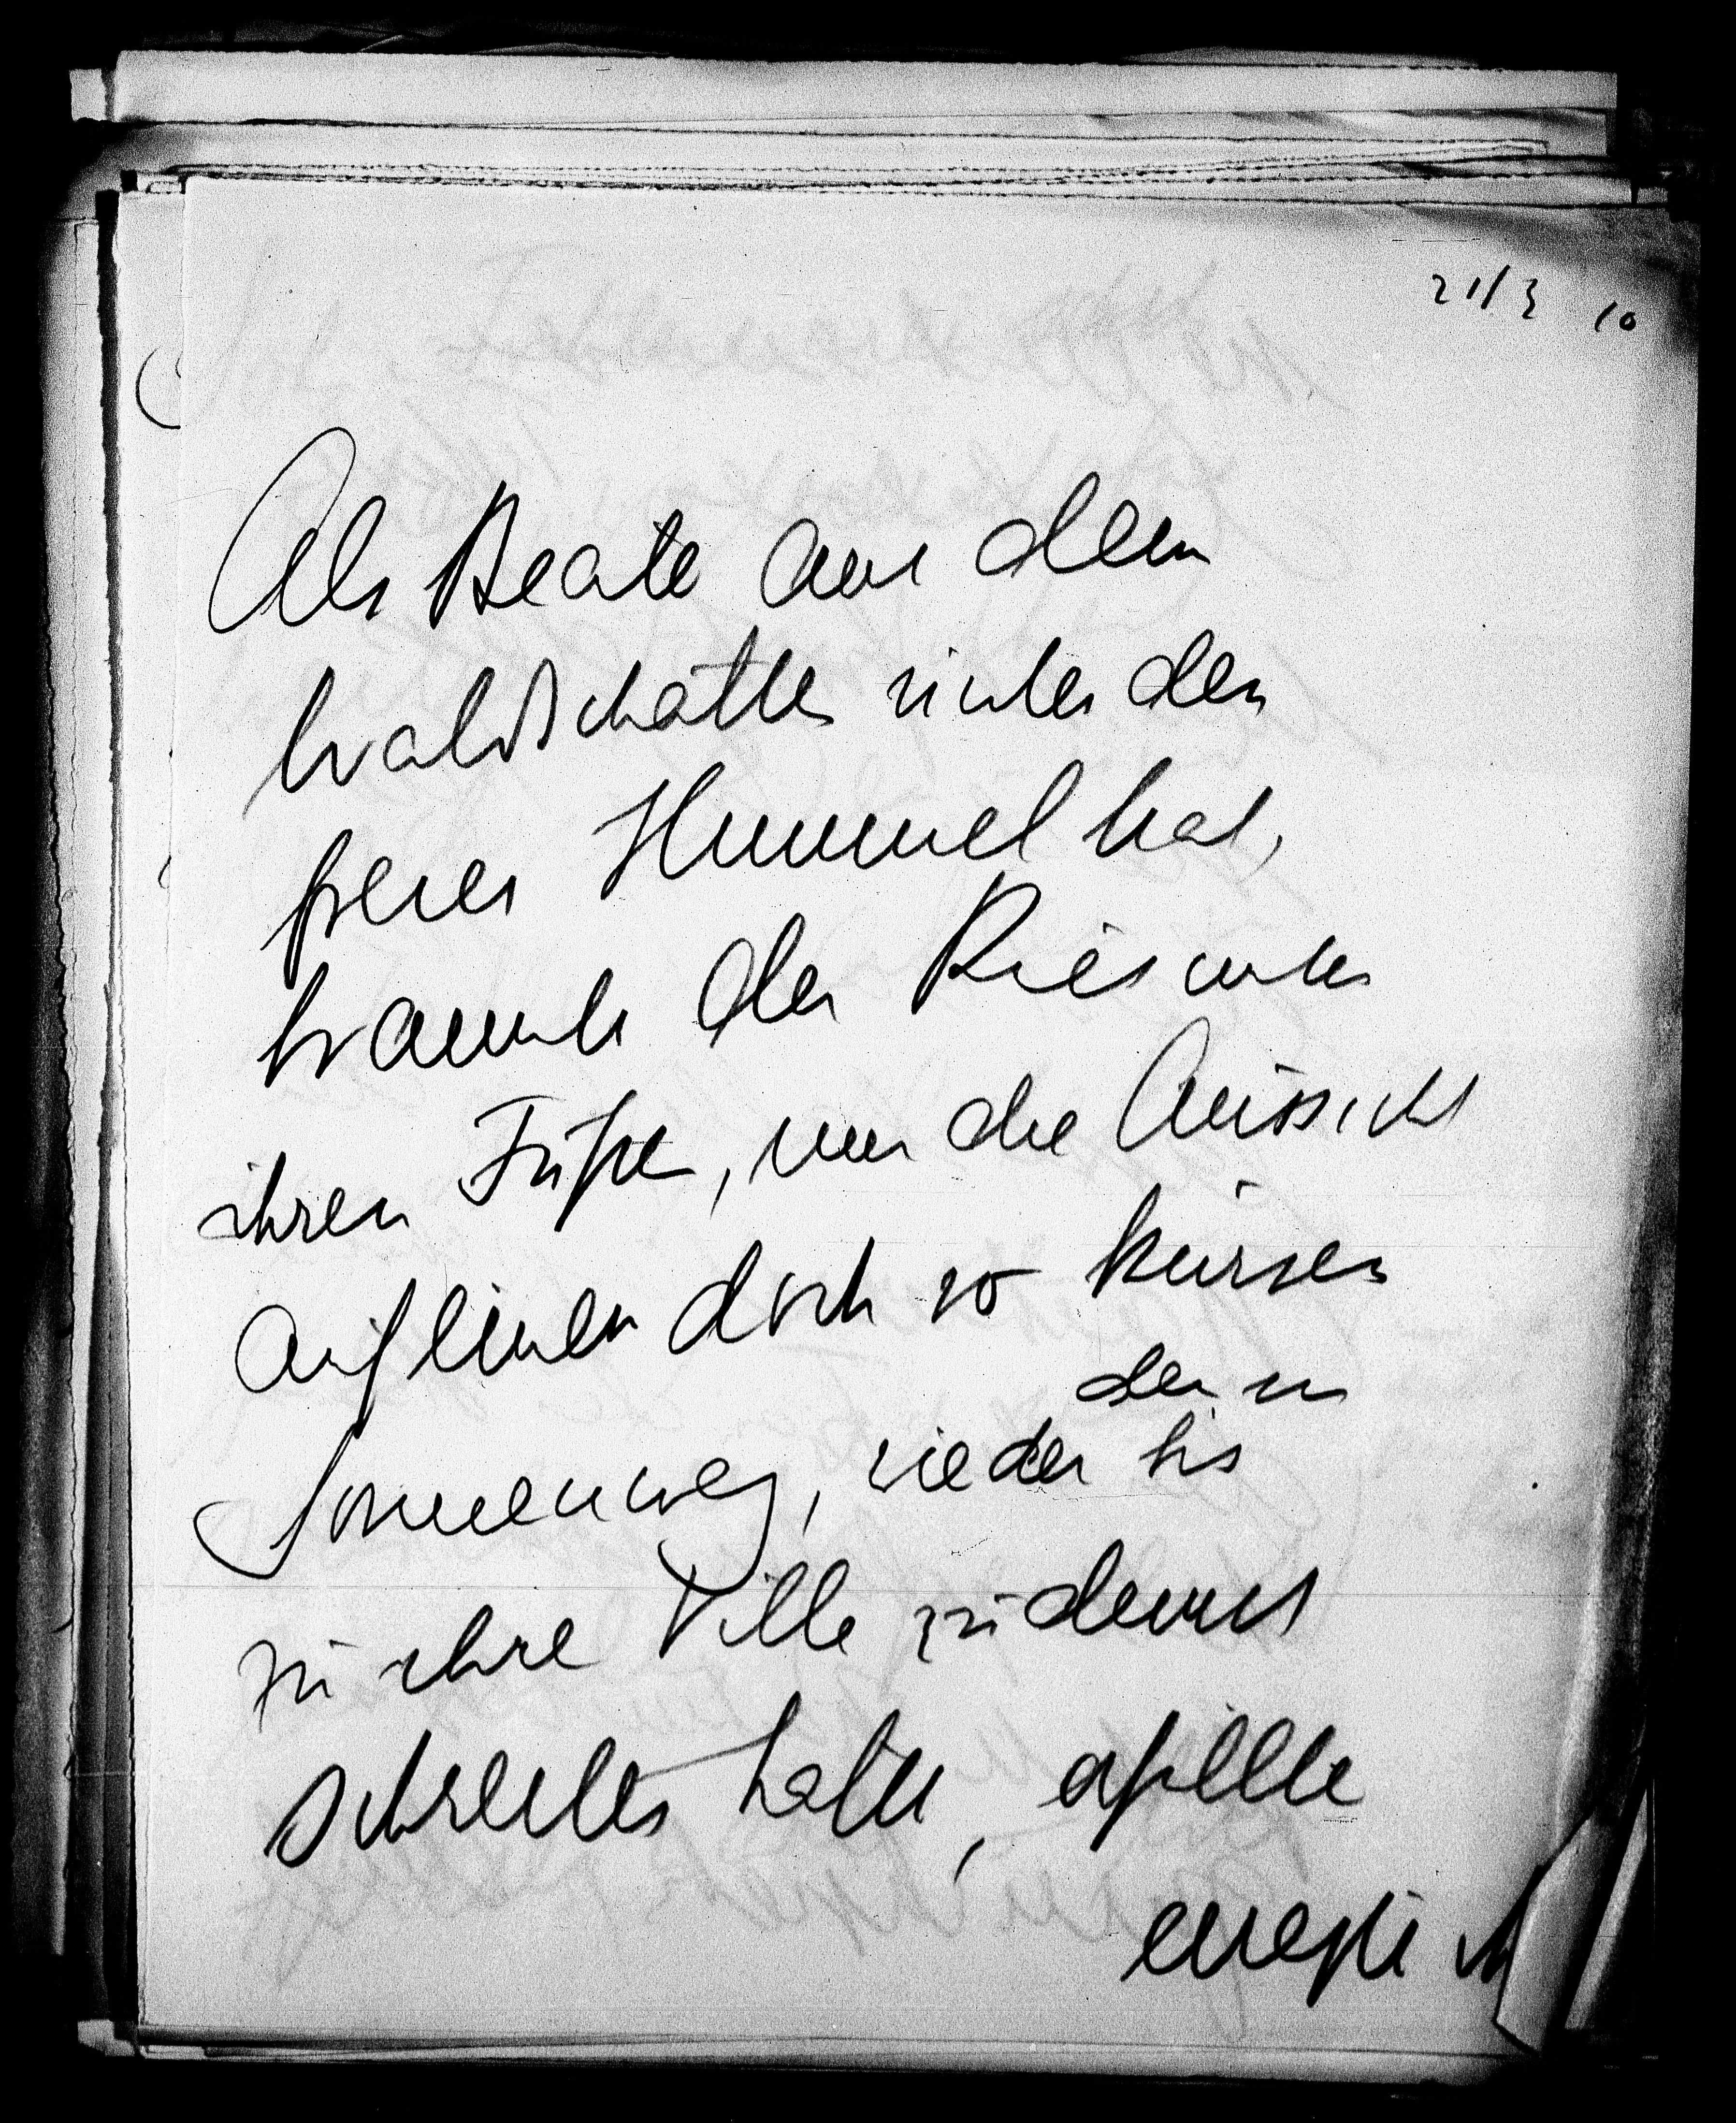 21/3 10
Als Beate aus dem
Waldschatten unter den
freien Himmel trat,
brannte der Kies unter
ihren Füßen, um die Aussicht
auf einen doch so kurzen
den sn
Sonnenweg, wieder bis
zu ihre Villa zu
schreiten hatte, erfüllte